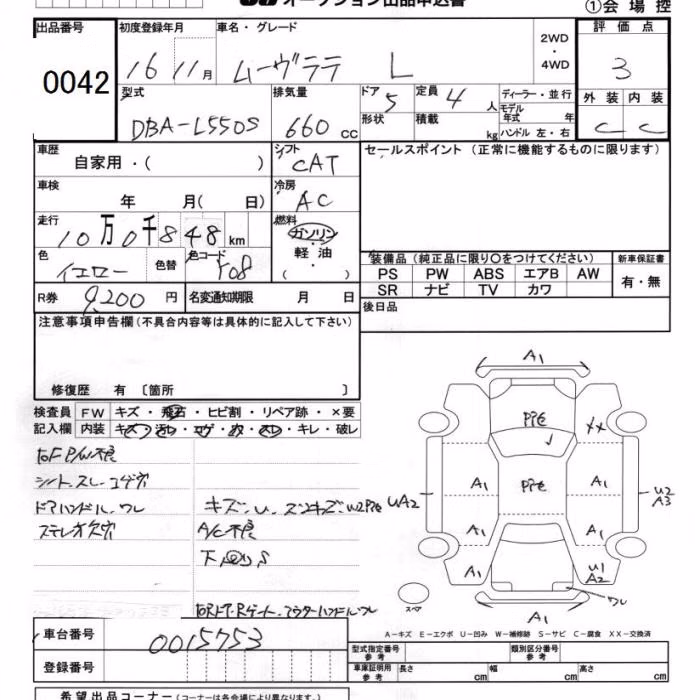 オークション出品申込書
①会場控
出品番号 0042
初度登録年月 16 11月
車名・グレード ムーヴラテ L
2WD・4WD
評価点 3
外装 C 内装 C
型式 DBA-L550S
排気量 660 cc
ドア 5
形状
定員 4 人
積載 kg
ディーラー・並行
モデル年式 年
ハンドル 左・右
車歴 自家用・( )
シフト CAT
セールスポイント (正常に機能するものに限ります)
車検 年 月( 日)
冷房 AC
走行 10万0千848km
燃料 ガソリン・軽油・( )
色 イエロー 色替
色コード Y08
装備品 (純正品に限り〇をつけてください)
新車保証書
PS PW ABS エアB AW
SR ナビ TV カワ
有・無
R券 9,200 円
名変通知期限 月 日
後日品
注意事項申告欄 (不具合内容等は具体的に記入して下さい)
修復歴 有 〔箇所 〕
検査員 FW キズ・飛石・ヒビ割・リペア跡・×要
記入欄 内装 キズ・汚レ・コゲ・穴・スレ・キレ・破レ
右F P/W不良
シート、スレ、コゲ穴
ドアハンドル、ワレ
ステレオ欠穴
キズ、U、
A/C不良
下、S
A1
Pアセ
XX
A1
Pアセ
A1
UA2
U2
A3
A1
A1
A1
U1
A2
ワレ
スペア
A1
A-キズ E-エクボ U-凹み W-補修跡 S-サビ C-腐食 XX-交換済
車台番号 0015753
型式指定番号 参考
類別区分番号 参考
登録番号
車庫証明用 参考 長さ cm 幅 cm 高さ cm
希望出品コーナー (コーナーは各会場により異なります)